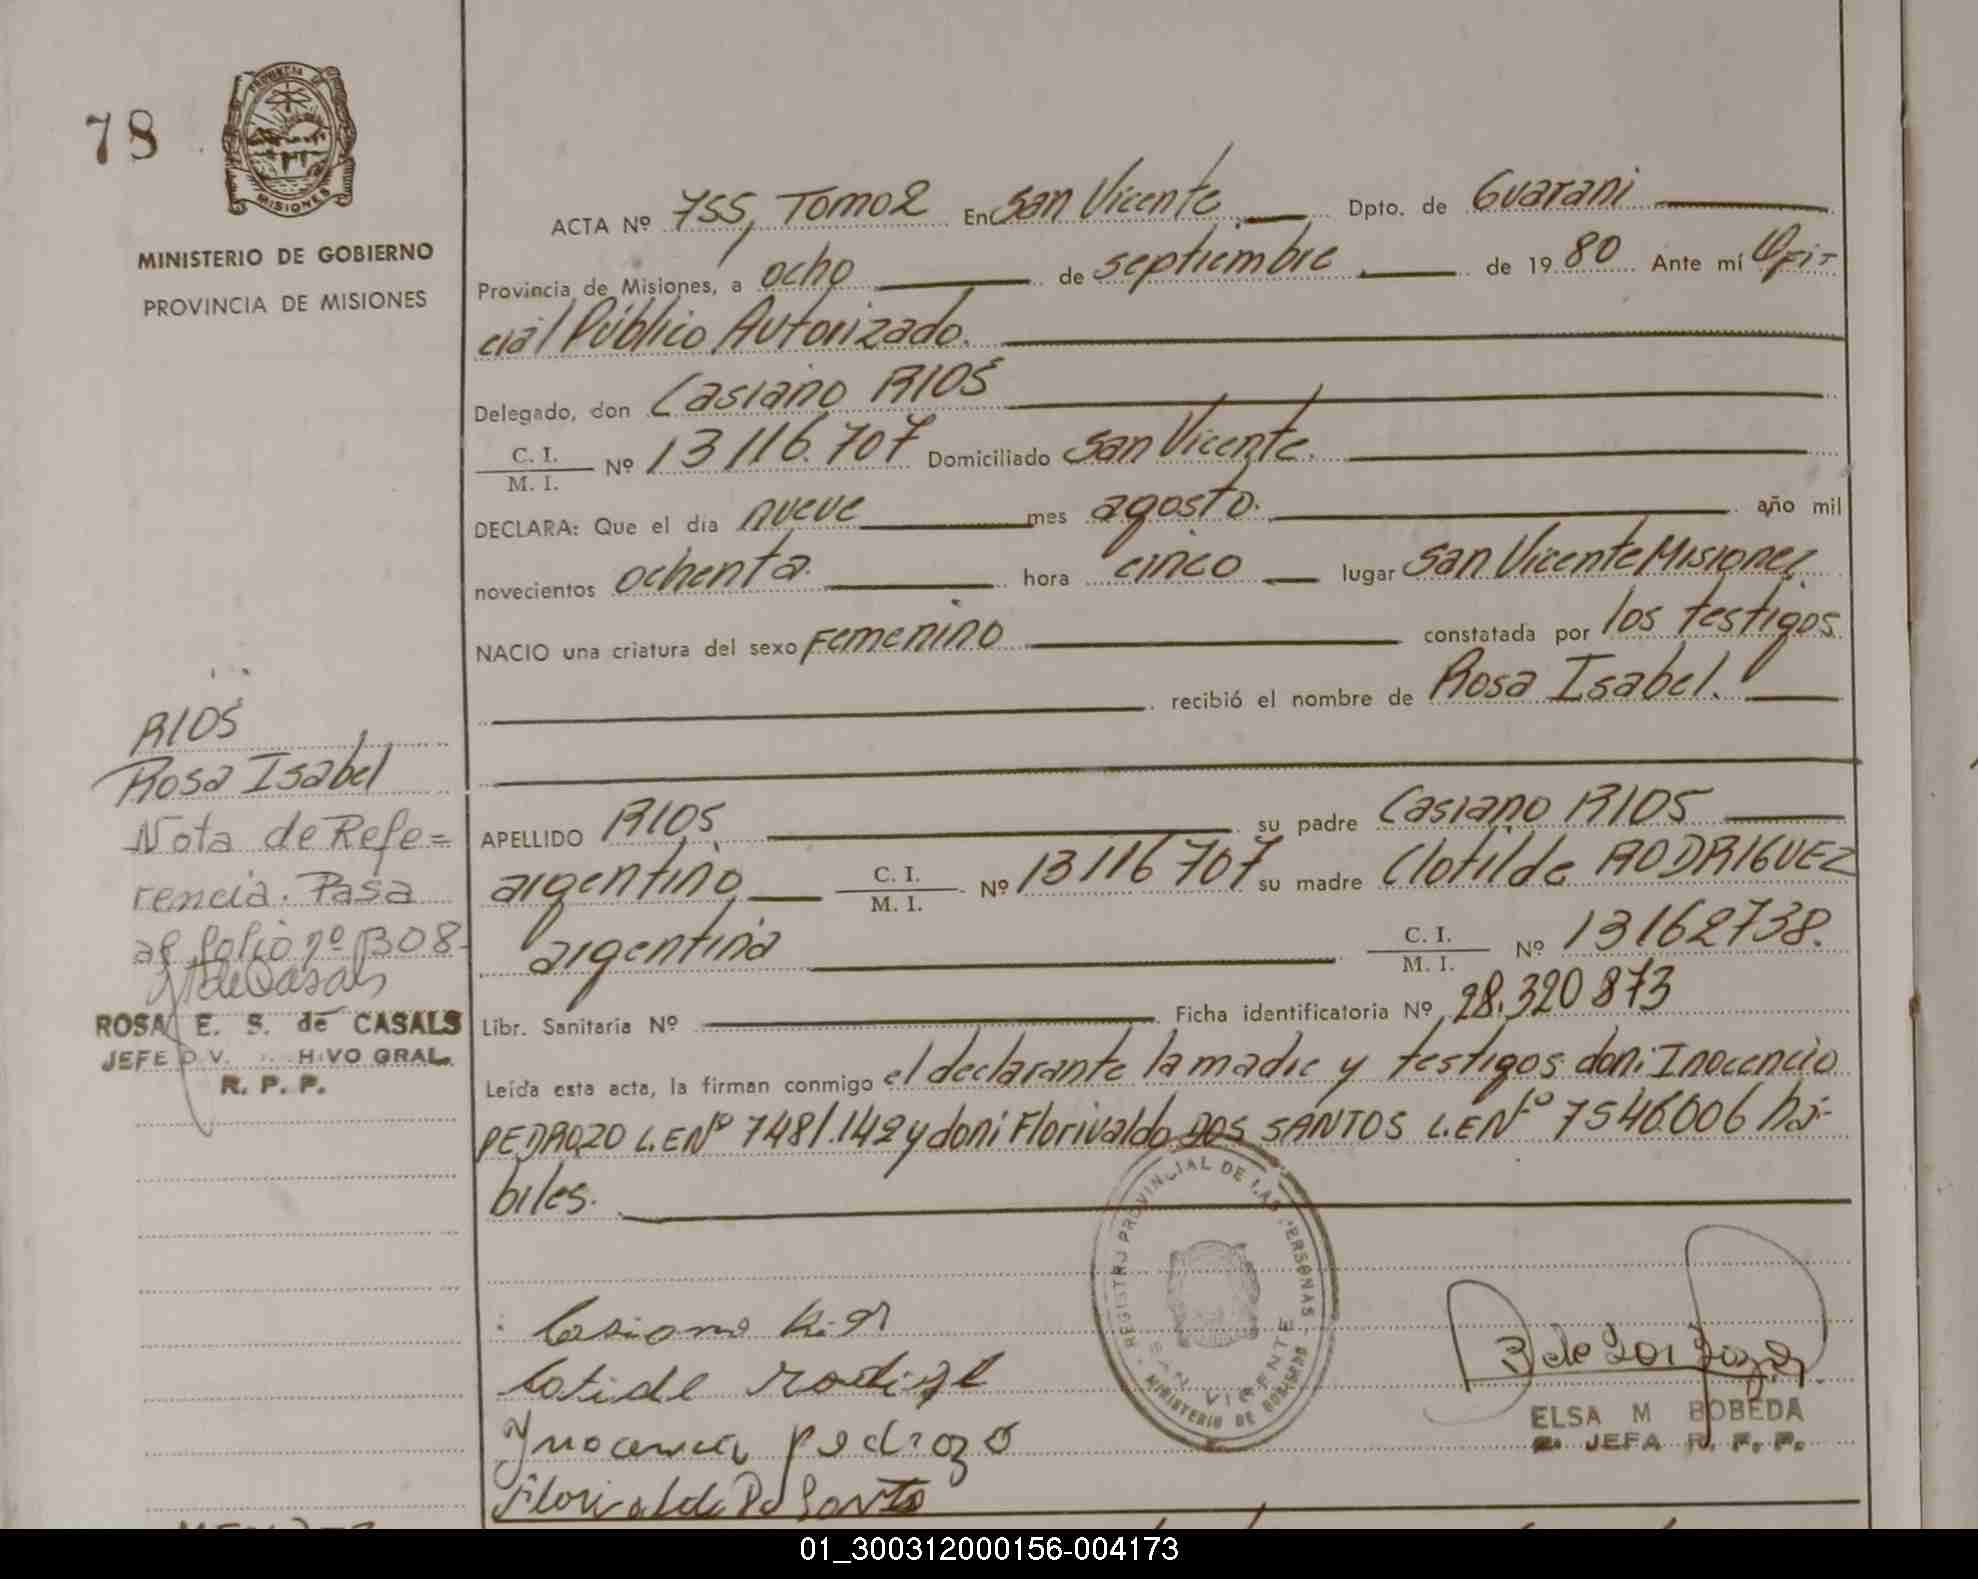 78
PROVINCIA DE
MISIONES
MINISTERIO DE GOBIERNO
PROVINCIA DE MISIONES
ACTA Nº 755, Tomo 2 En San Vicente Dpto. de Guarani
Provincia de Misiones, a ocho de septiembre de 1980 Ante mí Ofi-
cial Público Autorizado.
Delegado, don Casiano RIOS
C. I.
M. I. Nº 13116.707 Domiciliado San Vicente.
DECLARA: Que el día nueve mes agosto. año mil
novecientos ochenta. hora cinco lugar San Vicente Misiones.
NACIO una criatura del sexo Femenino constatada por los testigos
recibió el nombre de Rosa Isabel.
RIOS
Rosa Isabel
Nota de Refe=
rencia. Pasa
al folio nº 1308-
ROSA E. S. de CASALS
JEFE DIV. HIVO GRAL.
R. P. P.
APELLIDO RIOS su padre Casiano RIOS
argentino C. I.
M. I. Nº 13116707 su madre Clotilde RODRIGUEZ
argentina C. I.
M. I. Nº 13162738.
Libr. Sanitaria Nº Ficha identificatoria Nº 28.320873
Leída esta acta, la firman conmigo el declarante la madre y testigos: don: Inocencio
PEDROZO L.E Nº 7481.142 y don: Florivaldo DOS SANTOS L.E Nº 7546.006 há-
biles.
REGISTRO PROVINCIAL DE LAS PERSONAS
SAN VICENTE
MINISTERIO DE GOBIERNO
Casiano Rios
Inocencio pedrozo
ELSA M BOBEDA
JEFA R. P. P.
01_300312000156-004173